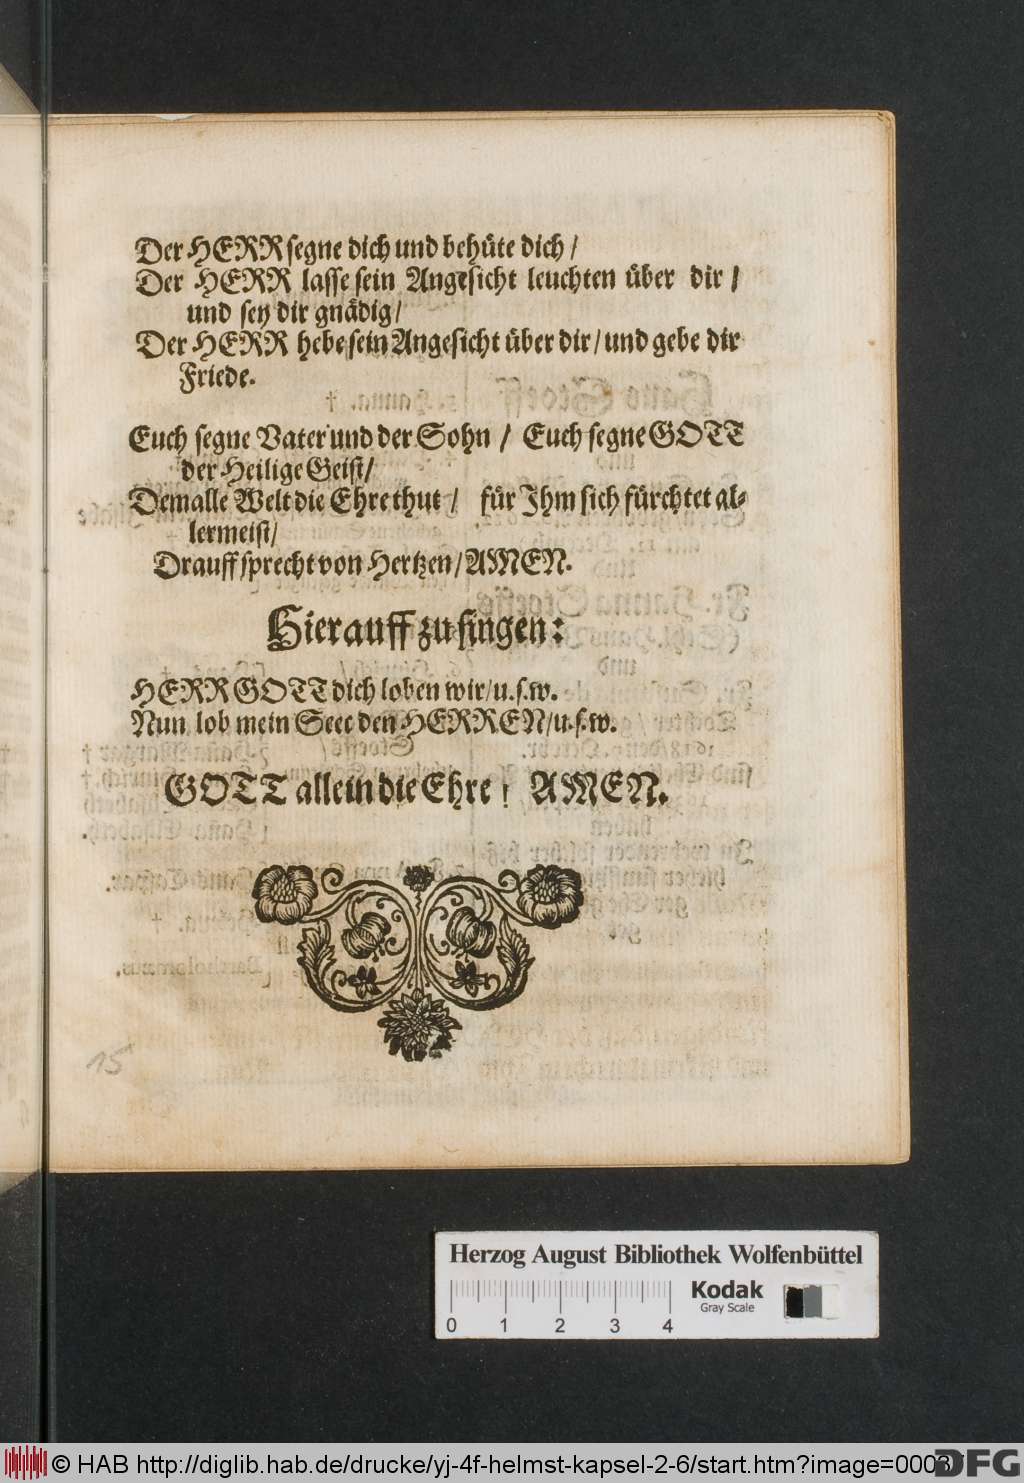 Der HERR segne dich und behüte dich /
Der HERR lasse sein Angesicht leuchten über dir /
und sey dir gnädig /
Der HERR hebe sein Angesicht über dir / und gebe dir
Friede.
Euch segne Vater und der Sohn / Euch segne GOTT
der Heilige Geist /
Dem alle Welt die Ehre thut / für Ihm sich fürchtet al-
lermeist /
Drauff sprecht von Hertzen / AMEN.
Hierauff zu singen:
HERR GOTT dich loben wir / u.s.w.
Nun lob mein Seel den HERREN / u.s.w.
GOTT allein die Ehre ! AMEN.
15
Herzog August Bibliothek Wolfenbüttel
Kodak
Gray Scale
0 1 2 3 4
© HAB http://diglib.hab.de/drucke/yj-4f-helmst-kapsel-2-6/start.htm?image=0003
DFG